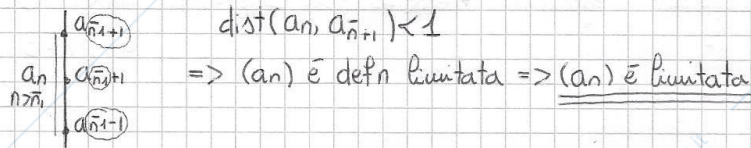 a_{n̄1+1} dist(an, a_{n̄+1}) < 1
an a_{n̄1}+1 => (an) è defn limitata => (an) è limitata
n>n̄1
a_{n̄1-1}